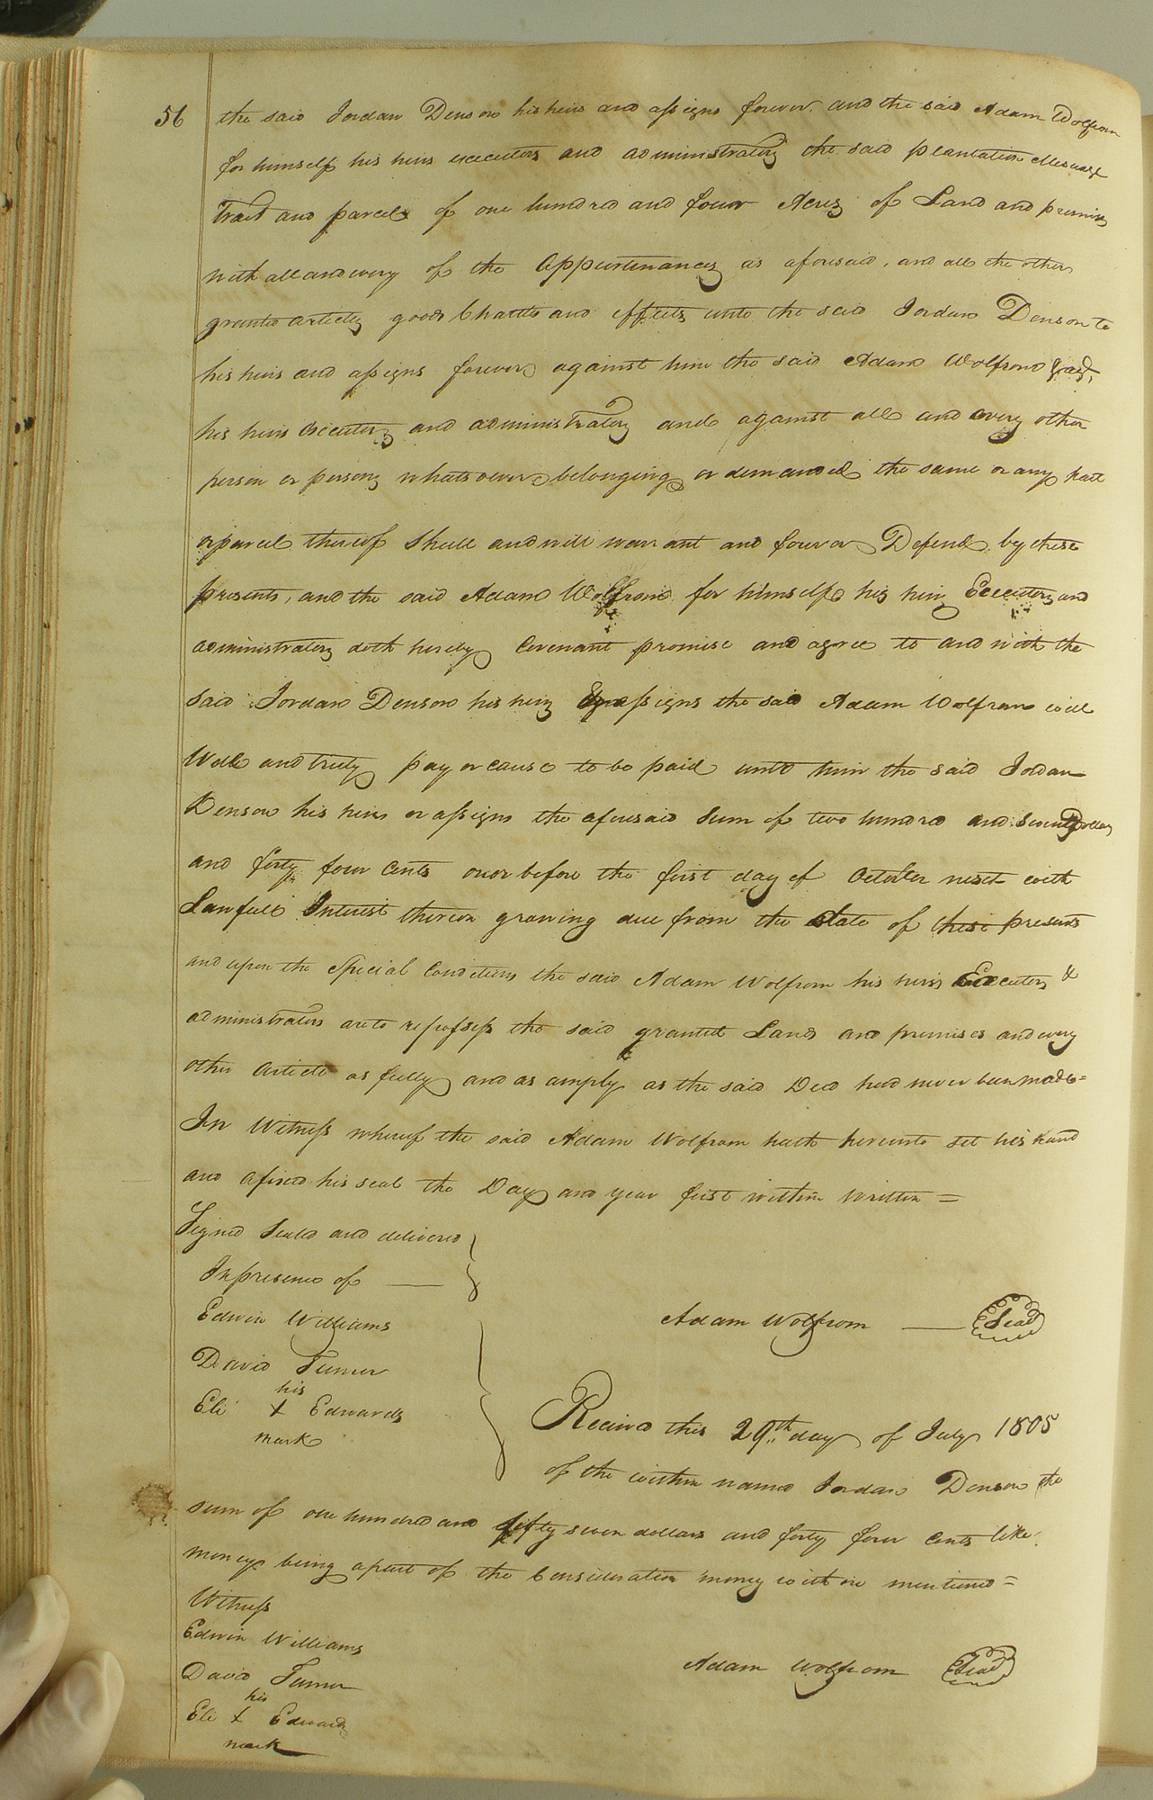 56
the said Jordan Denson his heirs and assigns forever and the said Adam Wolfrom
for himself his heirs executors and administrators the said plantation Messuage
Tract and parcels of one hundred and four Acres of Land and premises
with all and every of the Appurtenances as aforesaid, and all the other
granted articles goods Chattls and effects unto the said Jordan Denson to
his heirs and assigns forever against him the said Adam Wolfrom
his heirs executors and administrators and against all and every other
person or persons whatsoever belonging or demanded the same or any part
or parcel thereof shall and will warrant and forever Defend by these
presents, and the said Adam Wolfrom for himself his heirs Executors and
administrators doth hereby Covenant promise and agree to and with the
said Jordan Denson his heirs assigns the said Adam Wolfrom will
Well and truly pay or cause to be paid unto him the said Jordan
Denson his heirs or assigns the aforesaid Sum of two hundred and seventy dollars
and forty four Cents on or before the first day of October next with
Lawfull Interest thereon growing due from the date of these presents
and upon the Special Conditions the said Adam Wolfrom his heirs Executors &
administrators are to repossess the said granted Land and premises and every
other Article as fully and as amply as the said Deed had never been made=
In Witness whereof the said Adam Wolfrom hath hereunto set his hand
and afixed his seal the Day and year first within written =
Signed Sealed and delivered
In presence of
Edwin Williams
Adam Wolfrom Seal
David Turner
his
Eli X Edwards
mark
Received this 29th day of July 1805
of the within named Jordan Denson the
sum of one hundred and fifty seven dollars and forty four Cents like
money being apart of the Consideration money within mentioned=
Witness
Edwin Williams
David Turner
Adam Wolfrom Seal
his
Eli X Edwards
mark